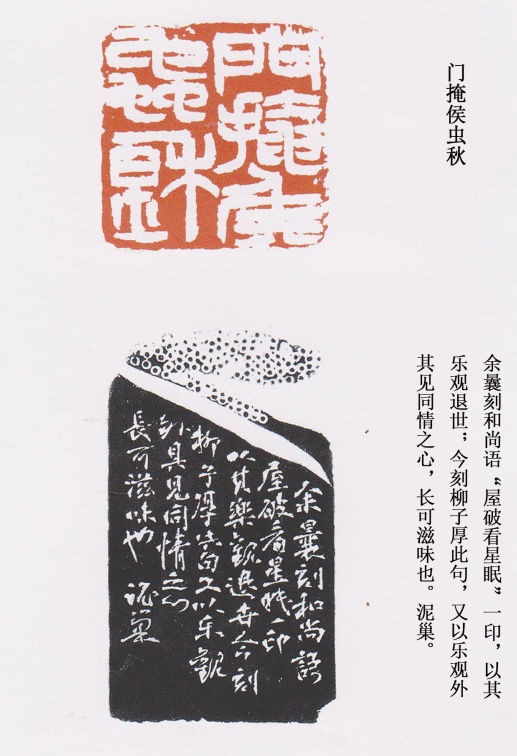 门掩侯虫秋
余曩刻和尚语“屋破看星眠”一印，以其
乐观退世；今刻柳子厚此句，又以乐观外
其见同情之心，长可滋味也。泥巢。
余曩刻和尚語
屋破看星眠一印
以其樂觀退世今刻
柳子厚句又以乐觀
具见同情之心
長可滋味也 泥巢